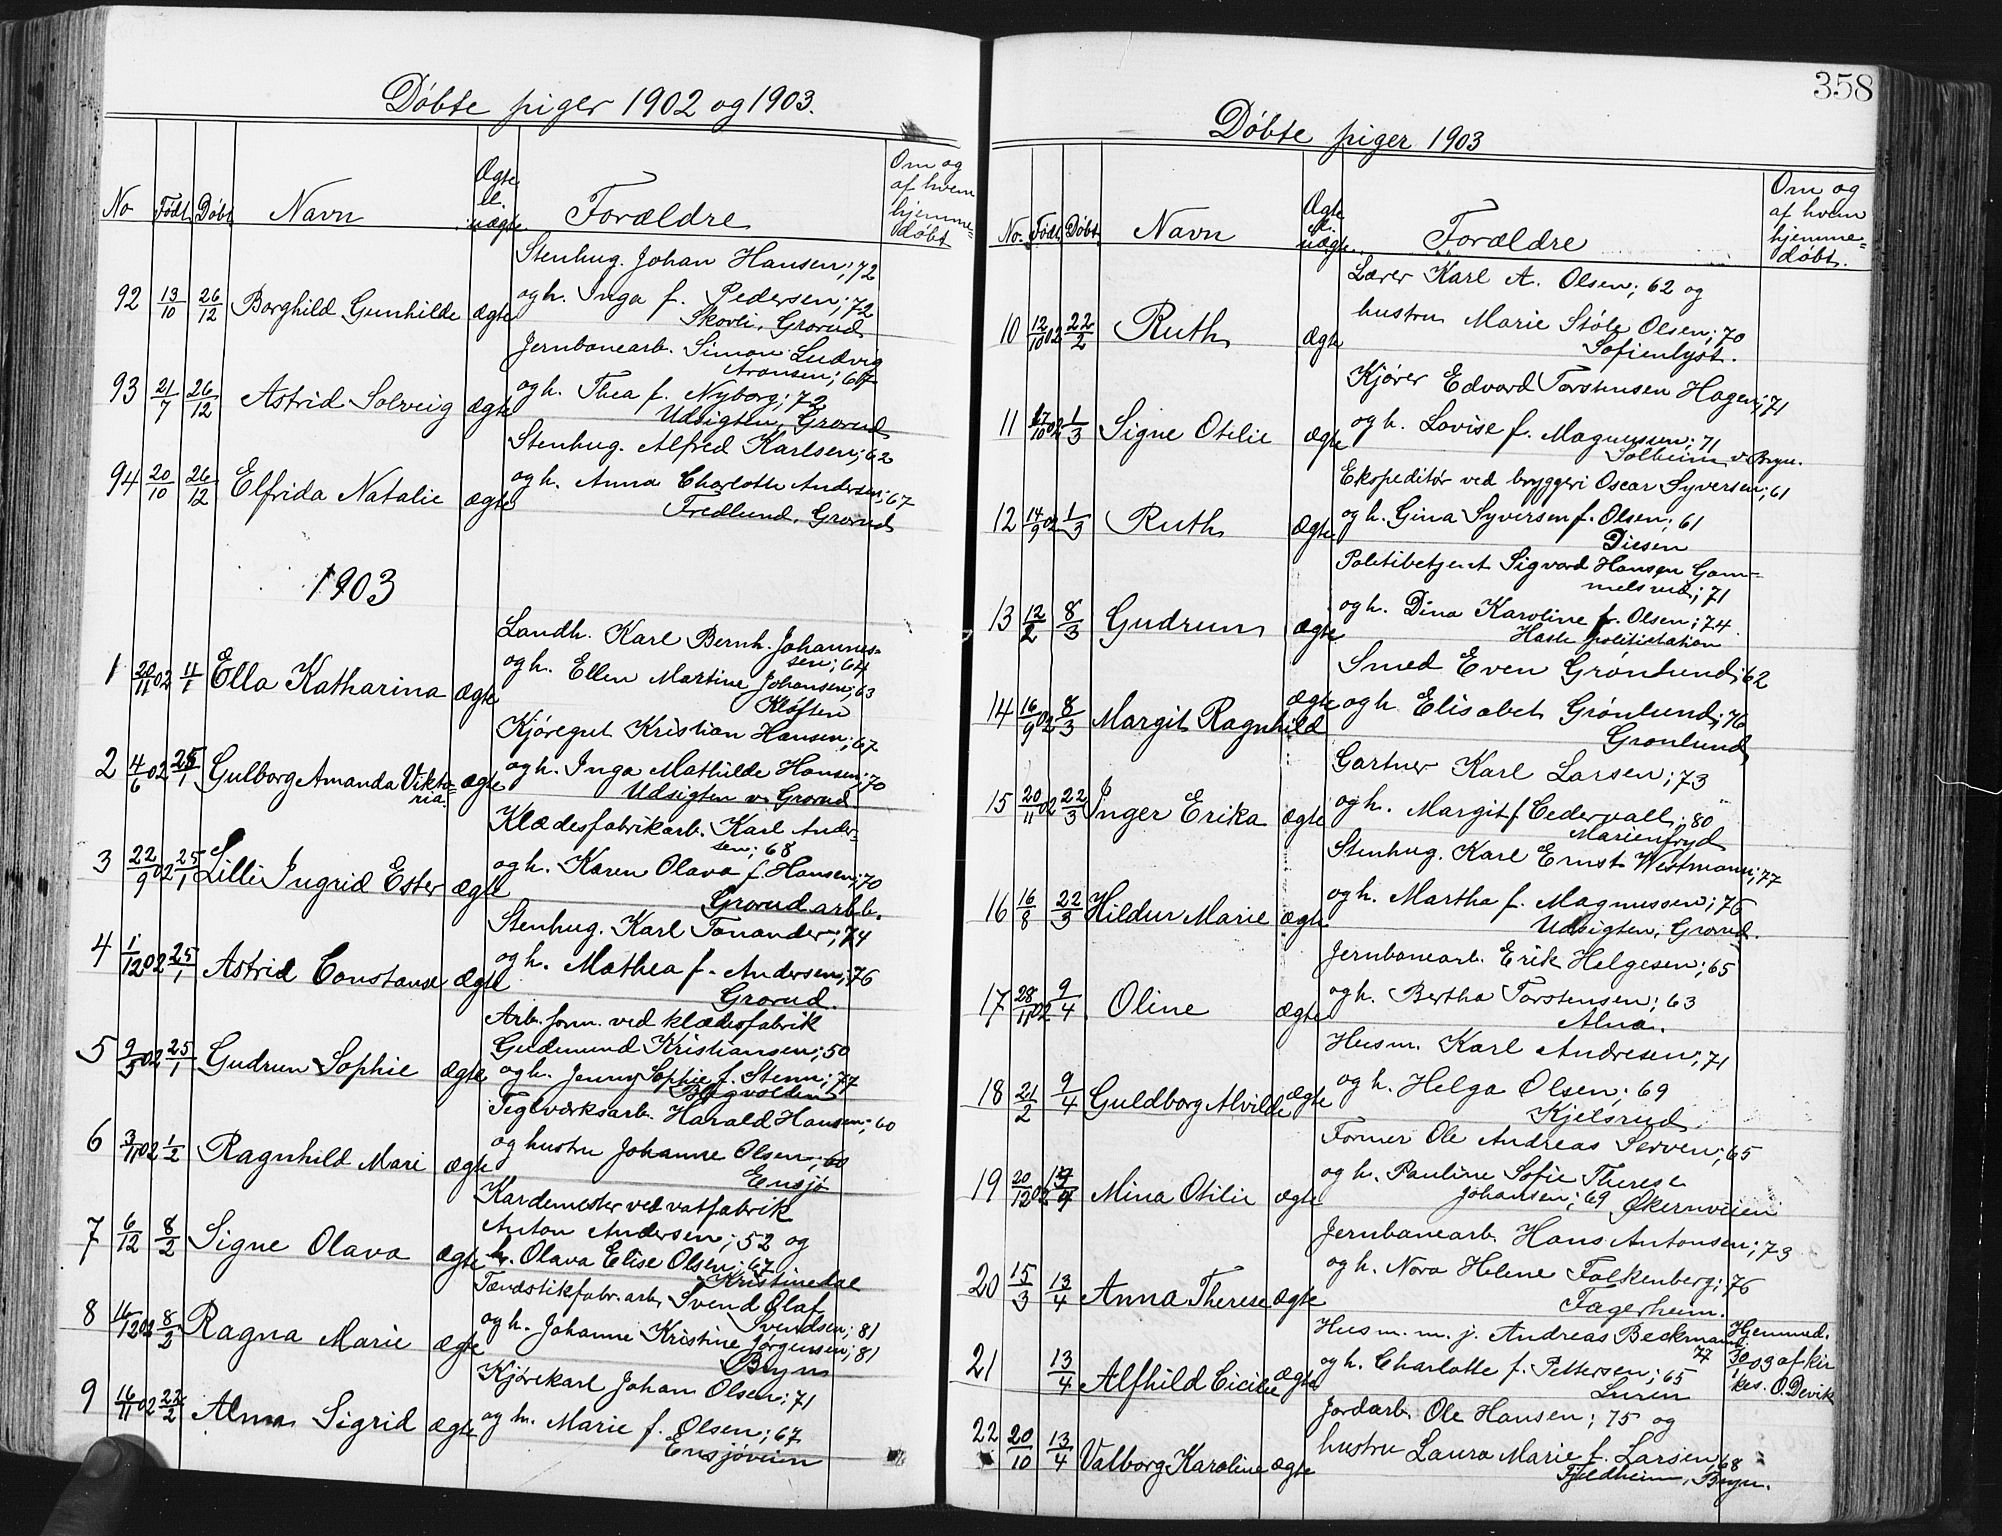 Døbte piger 1902 og 1903.
No Født Døbt Navn Ægte el. uægte Forældre Om og af hvem hjemme=døbt
92 13/10 26/12 Borghild Gunhilde ægte Stenhug. Johan Hansen; 72
og h. Inga f. Pedersen; 72
Skovli, Grorud
93 21/7 26/12 Astrid Solveig ægte Jernbanearb. Simon Ludvig
Aronsen; 67
og h. Thea f. Nyborg; 72
Udsigten, Grorud
94 20/10 26/12 Elfrida Natalie ægte Stenhug. Alfred Karlsen; 62
og h. Anna Charlotte Andersen; 67
Fredlund, Grorud
1903
1 20/11 02 4/1 Ella Katharina ægte Landh. Karl Bernh. Johannes=
sen; 64
og h. Ellen Martine Johansen; 63
Kløften
2 4/6 02 25/1 Gulborg Amanda Vikto=
ria ægte Kjøregut Kristian Hansen; 67
og h. Inga Mathilde Hansen; 70
Udsigten v. Grorud
3 22/9 02 25/1 Lilli Ingrid Ester ægte Klædesfabrikarb. Karl Ander=
sen; 68
og h. Karen Olava f. Hansen; 70
Grorud arbb.
4 1/12 02 25/1 Astrid Constanse ægte Stenhug. Karl Tonander; 74
og h. Mathea f. Andersen; 76
Grorud.
5 9/5 02 25/1 Gudrun Sophie ægte Arb. form. ved klædesfabrik
Gudmund Kristiansen; 50
og h. Jenny Sophie f. Stenn; 77
6 3/11 02 1/2 Ragnhild Mari ægte Teglværksarb. Harald Hansen; 60
og hustru Johanne Olsen; 60
Ensjø
7 6/12 8/2 Signe Olava ægte Kardemester ved vatfabrik
Anton Andersen; 52 og
h. Olava Elise Olsen; 67
Kristinedal
8 16/12 02 8/2 Ragna Marie ægte Tændstikfabr. arb. Svend Olaf
Svendsen; 81
og h. Johanne Kristine Jørgensen; 81
Bryn
9 16/11 02 22/2 Alma Sigrid ægte Kjørekarl Johan Olsen; 71
og h. Marie f. Olsen; 67
Ensjøveien
358
Døbte piger 1903
No. Født Døbt Navn Ægte el. uægte Forældre Om og af hvem hjemme=døbt.
10 12/10 02 22/2 Ruth ægte Lærer Karl A. Olsen; 62 og
hustru Marie Støle Olsen; 70
Sofienlyst.
11 17/10 02 1/3 Signe Otilie ægte Kjører Edvard Torstensen Hagen; 71
og h. Lovise f. Magnussen; 71
Solheim v. Bryn.
12 14/9 02 1/3 Ruth ægte Ekspeditør ved bryggeri Oscar Syversen; 61
og h. Gina Syversen f. Olsen; 61
Diesen
13 12/2 8/3 Gudrun ægte Politibetjent Sigvard Hansen Gam=
melsrud; 71
og h. Dina Karoline f. Olsen; 74.
Hasle politistation
14 16/9 02 8/3 Margit Ragnhild ægte Smed Even Grønlund; 62
og h Elisabet Grønlund; 76
Grønlund
15 20/11 02 22/3 Inger Erika ægte Gartner Karl Larsen; 73
og h. Margit f. Cedervall; 80
Marienfryd
16 16/8 22/3 Hildur Marie ægte Stenhug. Karl Ernst Westmann; 77
og h. Martha f. Magnussen; 76
Udsigten, Grorud.
17 28/11 02 9/4 Oline ægte Jernbanearb. Erik Helgesen; 65
og h. Bertha Torstensen; 63
Alna.
18 21/2 9/4 Guldborg Alvilde ægte Husm. Karl Andresen; 71
og h. Helga Olsen; 69
Kjelsrud
19 20/12 02 Mina Otilie ægte Former Ole Andreas Serven; 65
og h. Pauline Sofie Therese
Johansen; 69 Økernveien
20 15/3 13/4 Anna Therese ægte Jernbanearb. Hans Antonsen; 73
og h. Nora Helene Falkenberg; 76
Fagerheim.
21 13/4 Alfhild Cicilie ægte Husm. m. j. Andreas Beckmann
77
og h. Charlotte f. Pettersen; 65
Luren
Hjemmed.
03 af kir
kes. O. Devik
22 20/10 13/4 Valborg Karoline ægte Jordarb. Ole Hansen; 75 og
hustru Laura Marie f. Larsen; 68
Fjeldheim, Bryn.